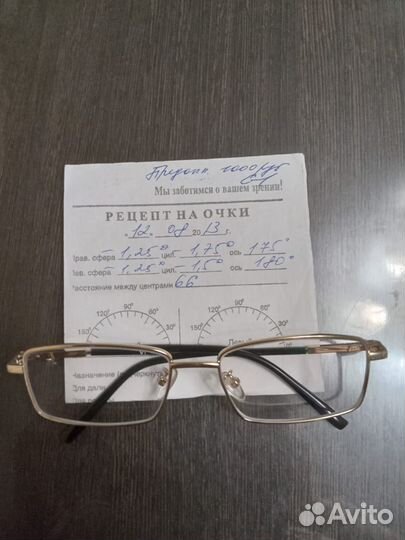 Предопл. 1000 руб
Мы заботимся о вашем зрении!
РЕЦЕПТ НА ОЧКИ
"12" 08 2013 г.
Прав. сфера – 1,25 D цил. – 1,75 D ось 175°
Лев. сфера – 1,25 D цил. – 1,5 D ось 180°
Расстояние между центрами 66
90° 90°
120° 60° 120° 60°
150° 30° 150° 30°
Назначение
Для дали
Для
Avito